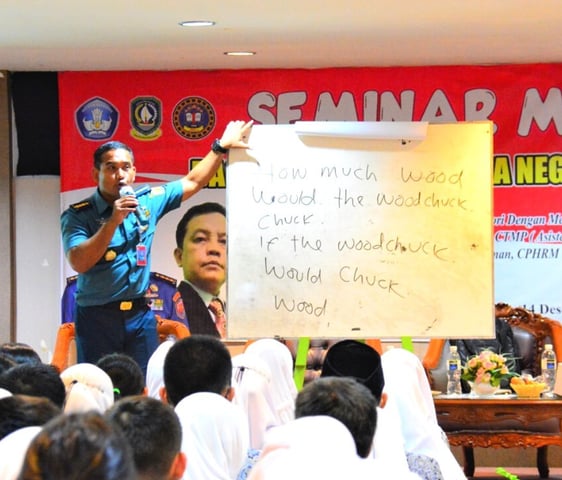 SEMINAR M
A NEG
ri Dengan Mo
CTMP ( Asist
nan, CPHRM
14 Des
How much wood
Would the woodchuck
Chuck.
If the woodchuck
Would Chuck
Wood